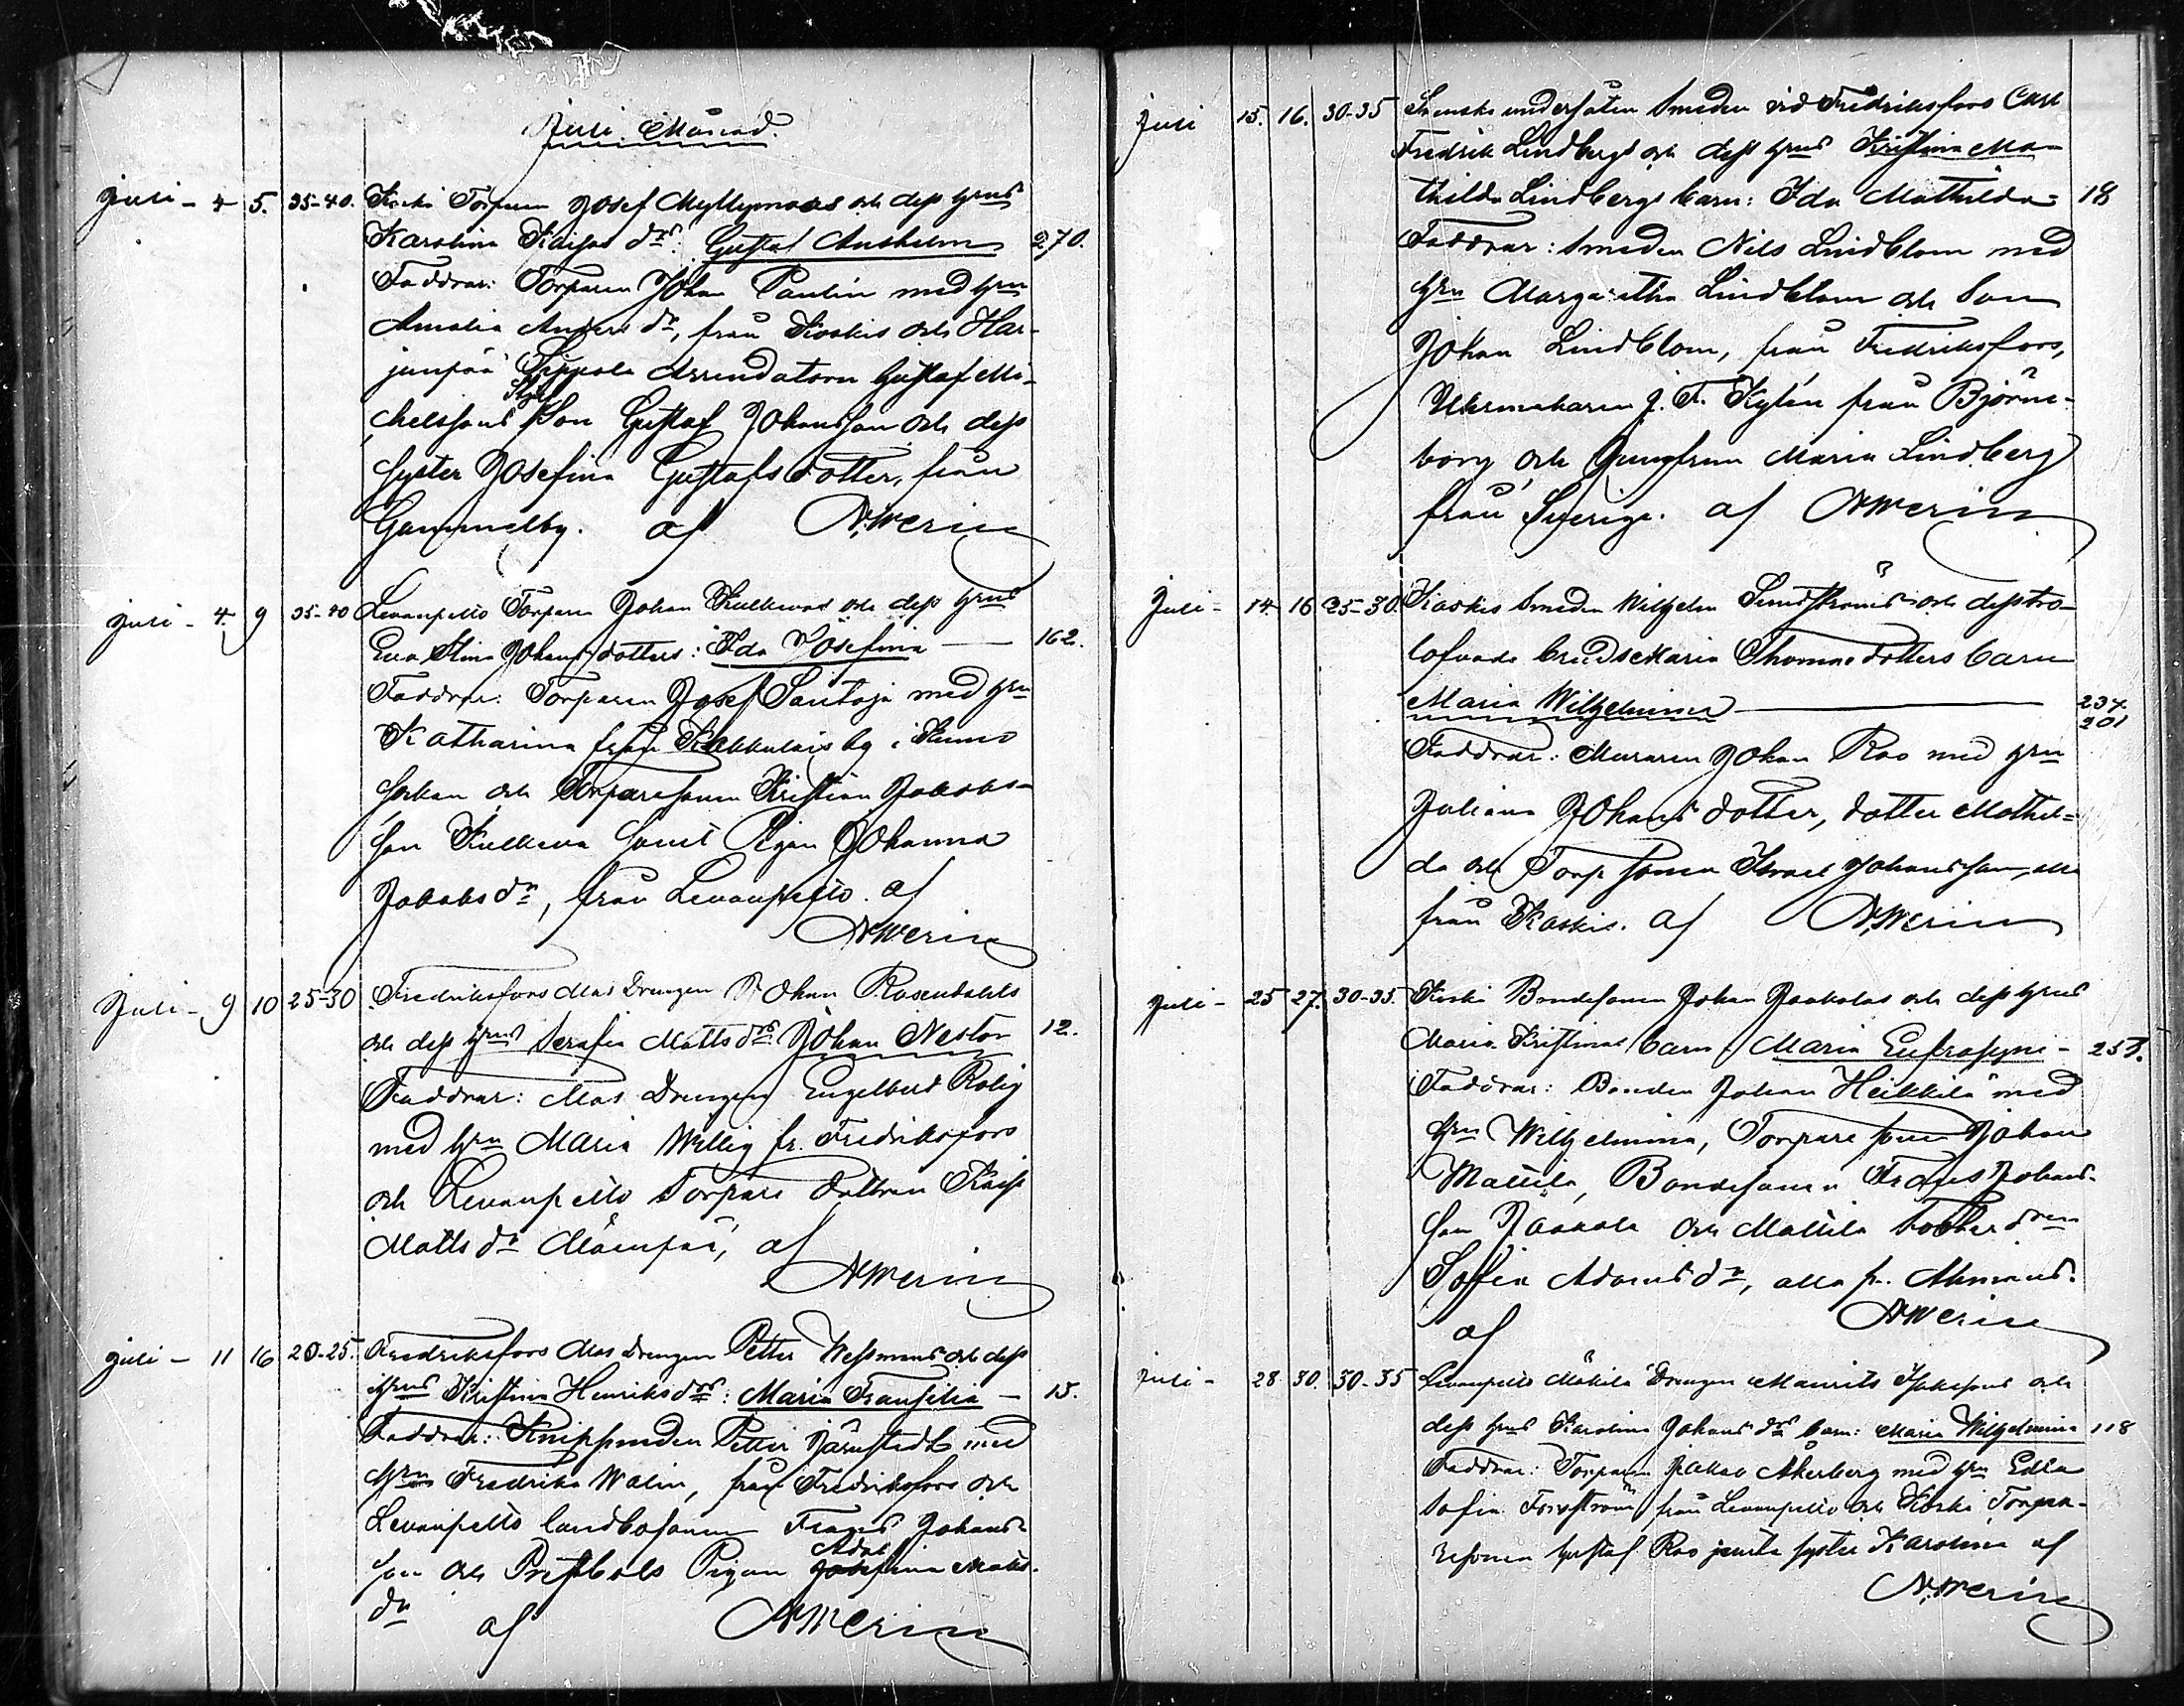 Juli Månad.
Juli - 4 5. 35-40. Koski Torparen Josef Myllymaas och dess hrus
Karolina Kaisas drs: Gustaf Anshelm 270.
Faddrar: Torparen Johan Paulin med hru
Amalia Anders dr, från Koskis och Har-
junpää Sippola Arrendatorn Gustaf Mi-
chelssons Son Gustaf Johansson och dess
syster Josefina Gustafsdotter, från
Gammelby. af AWerin
Juli - 4 9 35-40 Levanpelto Torparen Johan Kulkevas och dess hrus
Eva Stina Johansdotters: Ida Josefina — 162.
Faddrar: Torparen Josef Santaja med hru
Katharina från by i Kumo
Socken och Torparesonen Kristian Jakobs-
son Kulkeva samt Pigan Johanna
Jakobs dr, från Levanpelto. af
AWerin
Juli - 9 10 25-30 Fredriksfors Mas Drengen Johan Rosendahls
och dess hrus Serafia Matts drs Johan Nestor 12.
Faddrar: Mas Drengen Engelbert Rolig
med hru Maria Willig fr. Fredriksfors
och Levanpelto Torpare dottren Kaisa
Matts dr Mäenpää, af
AWerin
Juli - 11 16 20-25. Fredriksfors Mas Drengen Petter Wessmans och dess
hrus Kristina Henriks drs: Maria Fransilia — 15.
Faddrar: Knipsmeden Petter Järnstedt med
hru Fredrika Walin, från Fredriksfors och
Levanpelto landbosonen Frans Johans-
son och Prestbols Pigan Adolfina Matts-
dr af AWerin
Juli 15. 16. 30-35 Svenske undersåten Smeden vid Fredriksfors Carl
Fredrik Lindbergs och dess hrus Kristina Ma-
thilda Lindbergs barn: Ida Mathilda - 18
Faddrar: Smeden Nils Lindblom med
hru Margaretha Lindblom och Son
Johan Lindblom, från Fredriksfors,
Uhrmakaren J. F. Kylén från Björne-
borg och Jungfrun Maria Lindberg
från Sverige. af AWerin
Juli - 14 16 25-30. Kaskis Smeden Wilhelm Sundströms och dess tro-
lofvade bruds Maria Thomasdotters barn
Maria Wilhelmina — 234.
201
Faddrar: Muraren Johan Ras med hru
Juliana Johansdotter, dotter Mathil-
da och Torp sonen Israel Johansson, alla
från Kaskis. af AWerin
Juli - 25 27. 30-35. Koski Bondesonen Johan Jaakolas och dess hrus
Maria Kristinas barn: Maria Eufrosyne - 257.
Faddrar: Bonden Johan Heikkilä med
hru Wilhelmina, Torpare sonen Johan
Mattila, Bondesonen Frans Johans-
son Jaakola och Mattila dren
Sofia Adams dr, alla fr.
af AWerin
Juli - 28 30. 30-35 Levanpelto Mäkilä Drengen Maurits Isakssons och
dess hrus Karolina Johans drs barn: Maria Wilhelmina 118
Faddrar: Torparen Jakob Åkerberg med hru Edla
Sofia Forsström från Levanpelto och Koski Torpa-
resonen Gustaf Ras jemte syster Karolina af
AWerin